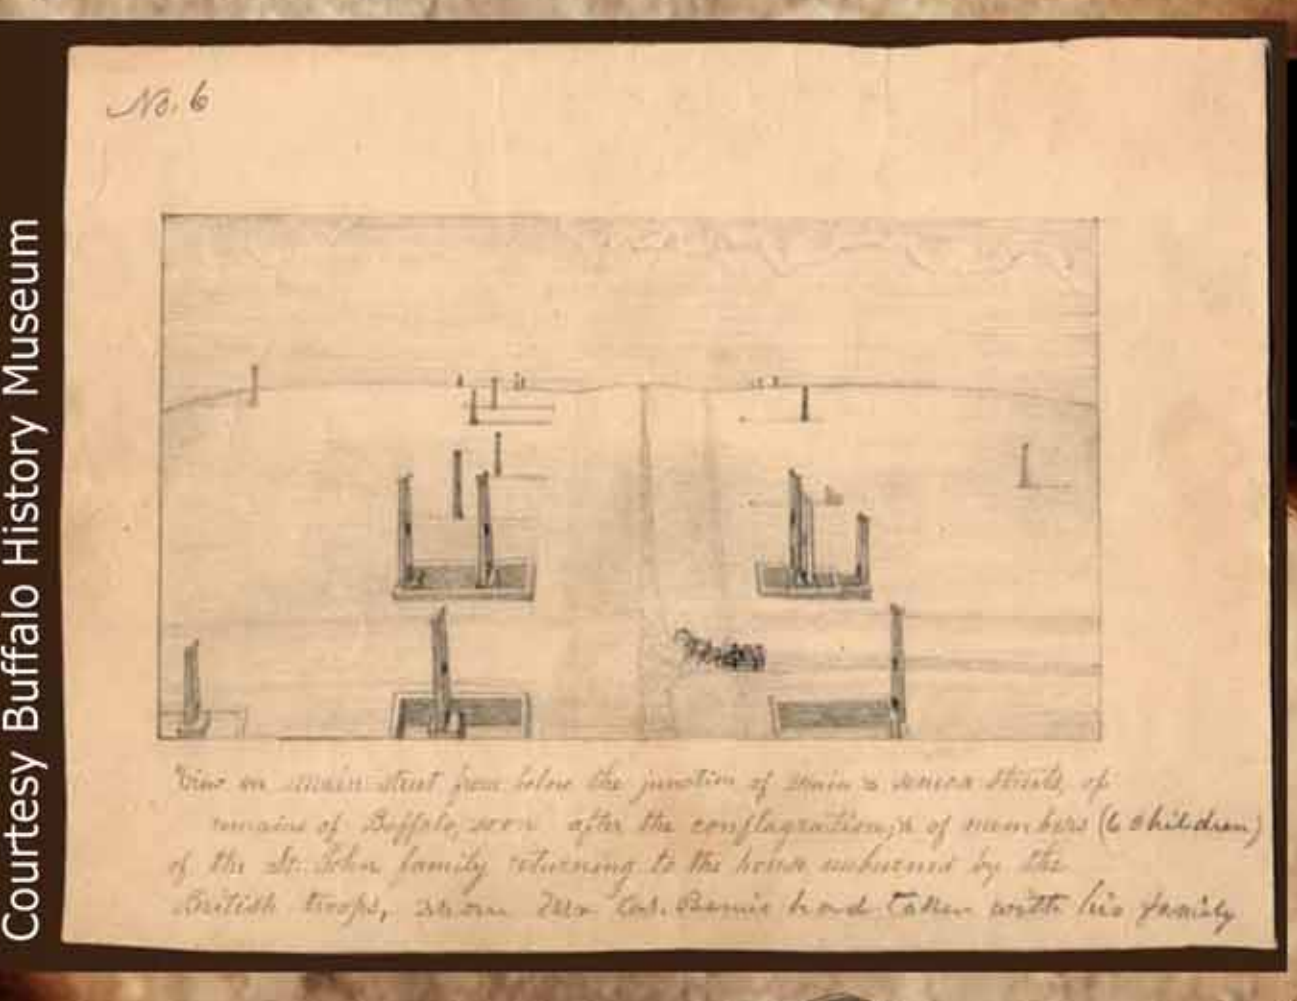 No. 6
Courtesy Buffalo History Museum
View on main street from below the junction of main & seneca streets, of
remains of Buffalo, soon after the conflagration, & of members (6 children)
of the St. John family returning to the house unburned by the
British troops, whom Mr Bemis had taken with his family